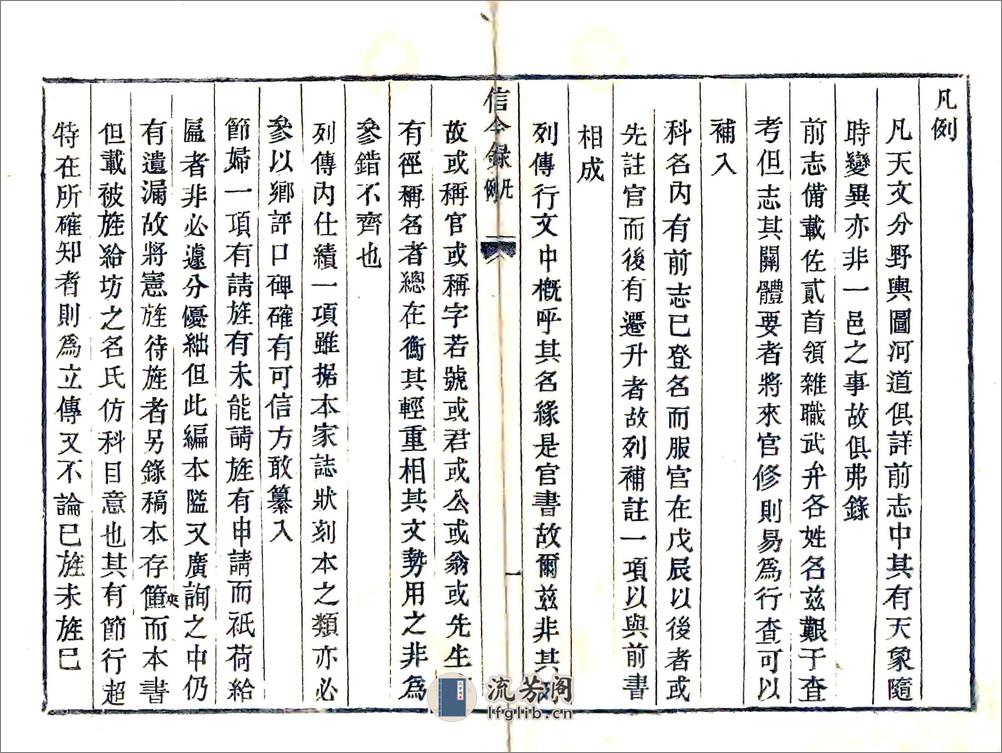 凡例
凡天文分野輿圖河道俱詳前志中其有天象隨
時變異亦非一邑之事故俱弗錄
前志備載佐貳首領雜職武弁各姓名茲艱于查
考但志其關體要者將來官修則易為行查可以
補入
科名內有前志已登名而服官在戊辰以後者或
先註官而後有遷升者故列補註一項以與前書
相成
列傳行文中概呼其名緣是官書故爾茲非其
信今錄 凡例 一
故或稱官或稱字若號或君或公或翁或先生
有徑稱名者總在衡其輕重相其文勢用之非為
參錯不齊也
列傳內仕績一項雖据本家誌狀刻本之類亦必
參以鄉評口碑確有可信方敢纂入
節婦一項有請旌有未能請旌有申請而祇荷給
匾者非必遽分優絀但此編本隘又廣詢之中仍
有遺漏故將憲旌待旌者另錄稿本存匧夾而本書
但載被旌給坊之名氏仿科目意也其有節行超
特在所確知者則為立傳又不論已旌未旌已
流芳阁
lfglib.cn